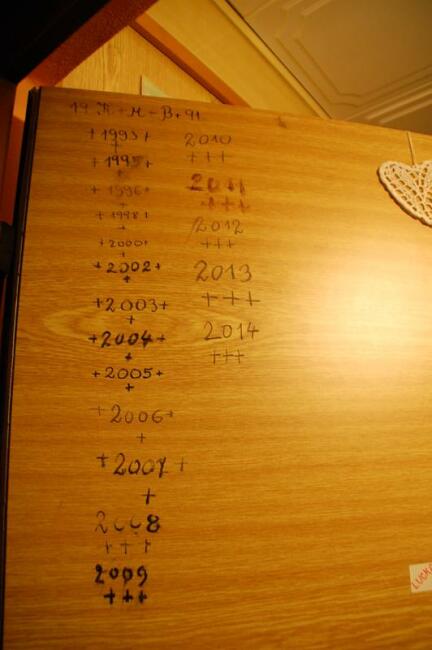 19 K+M+B+91
+1993+
+
+1995+
+
+1996+
+
+1998+
+
+2000+
+
+2002+
+
+2003+
+
+2004+
+
+2005+
+
+2006+
+
+2007+
+
2008
+++
2009
+++
2010
+++
2011
+++
2012
+++
2013
+++
2014
+++